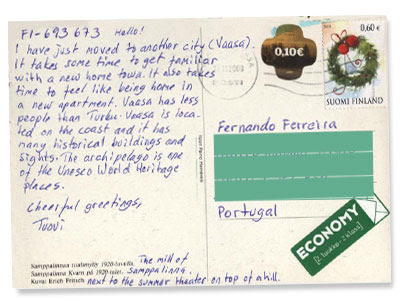 FI-693 673 Hello!
I have just moved to another city (Vaasa).
It takes some time to get familiar
with a new home town. It also takes
time to feel like being home in
a new apartment. Vaasa has less
people than Turku. Vaasa is loca-
ted on the coast and it has
many historical buildings and
sights. The archipelago is one
of the Unesco World Heritage
places.
Cheerful greetings,
Tuovi
Samppalinnan tuulimylly 1920-luvulla.
Samppalinna Kvarn på 1920-talet.
Kuva: Erich Fritsch
The mill of
Samppalinna
next to the summer theater on top of a hill.
0,10€
0,60 €
SUOMI FINLAND
Fernando Ferreira
Portugal
ECONOMY
[2. luokka • 2 klass]